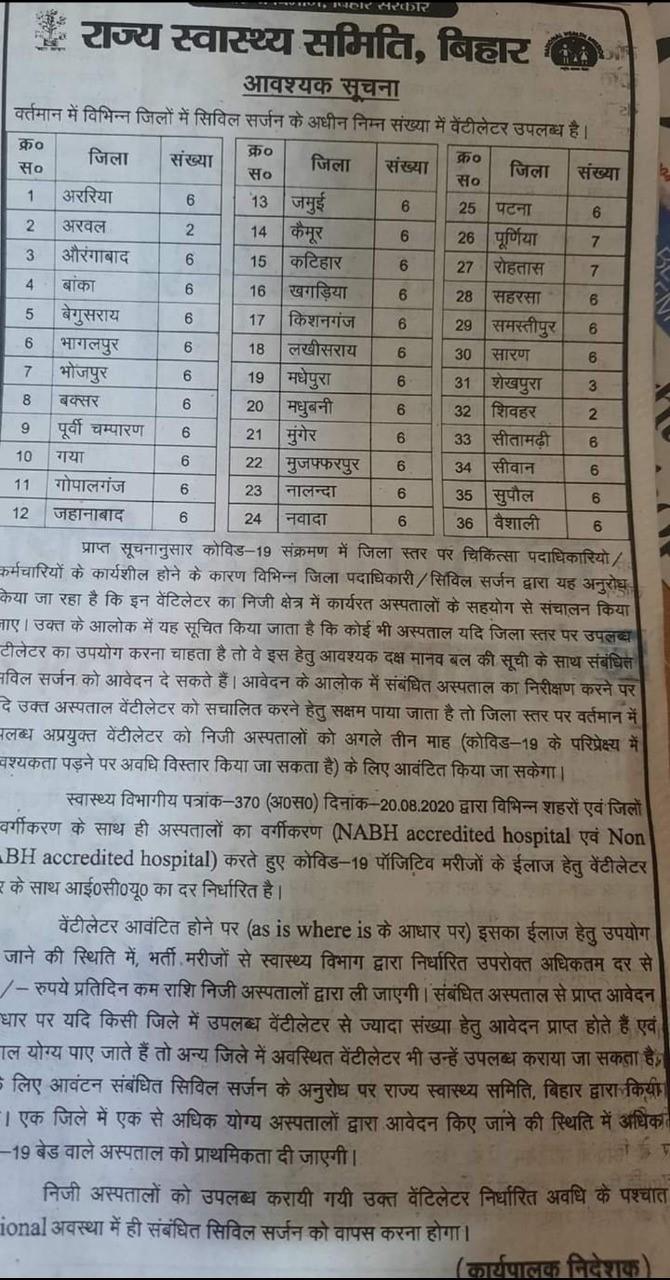 बिहार सरकार
राज्य स्वास्थ्य समिति, बिहार
आवश्यक सूचना
वर्तमान में विभिन्न जिलों में सिविल सर्जन के अधीन निम्न संख्या में वेंटीलेटर उपलब्ध है।
क्र० स० जिला संख्या
1 अररिया 6
2 अरवल 2
3 औरंगाबाद 6
4 बांका 6
5 बेगुसराय 6
6 भागलपुर 6
7 भोजपुर 6
8 बक्सर 6
9 पूर्वी चम्पारण 6
10 गया 6
11 गोपालगंज 6
12 जहानाबाद 6
क्र० स० जिला संख्या
13 जमुई 6
14 कैमूर 6
15 कटिहार 6
16 खगड़िया 6
17 किशनगंज 6
18 लखीसराय 6
19 मधेपुरा 6
20 मधुबनी 6
21 मुंगेर 6
22 मुजफ्फरपुर 6
23 नालन्दा 6
24 नवादा 6
क्र० स० जिला संख्या
25 पटना 6
26 पूर्णिया 7
27 रोहतास 7
28 सहरसा 6
29 समस्तीपुर 6
30 सारण 6
31 शेखपुरा 3
32 शिवहर 2
33 सीतामढ़ी 6
34 सीवान 6
35 सुपौल 6
36 वैशाली 6
प्राप्त सूचनानुसार कोविड–19 संक्रमण में जिला स्तर पर चिकित्सा पदाधिकारियो/
कर्मचारियों के कार्यशील होने के कारण विभिन्न जिला पदाधिकारी/सिविल सर्जन द्वारा यह अनुरोध
किया जा रहा है कि इन वेंटिलेटर का निजी क्षेत्र में कार्यरत अस्पतालों के सहयोग से संचालन किया
जाए। उक्त के आलोक में यह सूचित किया जाता है कि कोई भी अस्पताल यदि जिला स्तर पर उपलब्ध
टीलेटर का उपयोग करना चाहता है तो वे इस हेतु आवश्यक दक्ष मानव बल की सूची के साथ संबंधित
सर्जन को आवेदन दे सकते हैं। आवेदन के आलोक में संबंधित अस्पताल का निरीक्षण करने पर
दि उक्त अस्पताल वेंटीलेटर को सचालित करने हेतु सक्षम पाया जाता है तो जिला स्तर पर वर्तमान में
पलब्ध अप्रयुक्त वेंटीलेटर को निजी अस्पतालों को अगले तीन माह (कोविड–19 के परिप्रेक्ष्य में
वश्यकता पड़ने पर अवधि विस्तार किया जा सकता है) के लिए आवंटित किया जा सकेगा।
स्वास्थ्य विभागीय पत्रांक–370 (अ०स०) दिनांक–20.08.2020 द्वारा विभिन्न शहरों एवं जिलों
वर्गीकरण के साथ ही अस्पतालों का वर्गीकरण (NABH accredited hospital एवं Non
ABH accredited hospital) करते हुए कोविड–19 पॉजिटिव मरीजों के ईलाज हेतु वेंटीलेटर
के साथ आई०सी०यू० का दर निर्धारित है।
वेंटीलेटर आवंटित होने पर (as is where is के आधार पर) इसका ईलाज हेतु उपयोग
जाने की स्थिति में, भर्ती मरीजों से स्वास्थ्य विभाग द्वारा निर्धारित उपरोक्त अधिकतम दर से
/– रुपये प्रतिदिन कम राशि निजी अस्पतालों द्वारा ली जाएगी। संबंधित अस्पताल से प्राप्त आवेदन
धार पर यदि किसी जिले में उपलब्ध वेंटीलेटर से ज्यादा संख्या हेतु आवेदन प्राप्त होते हैं एवं
ाल योग्य पाए जाते हैं तो अन्य जिले में अवस्थित वेंटीलेटर भी उन्हें उपलब्ध कराया जा सकता है,
लिए आवंटन संबंधित सिविल सर्जन के अनुरोध पर राज्य स्वास्थ्य समिति, बिहार द्वारा किया
। एक जिले में एक से अधिक योग्य अस्पतालों द्वारा आवेदन किए जाने की स्थिति में अधिक
–19 बेड वाले अस्पताल को प्राथमिकता दी जाएगी।
निजी अस्पतालों को उपलब्ध करायी गयी उक्त वेंटिलेटर निर्धारित अवधि के पश्चात
ional अवस्था में ही संबंधित सिविल सर्जन को वापस करना होगा।
(कार्यपालक निदेशक)